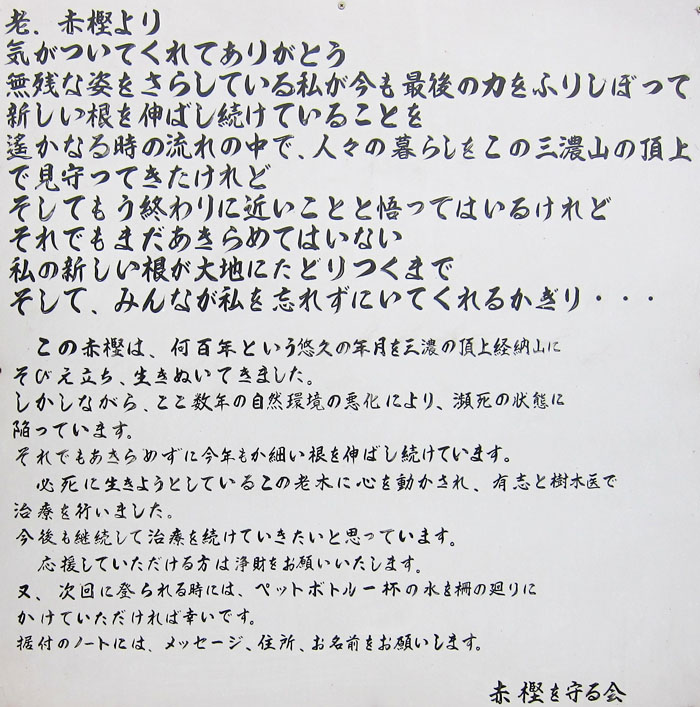 老．赤樫より
気がついてくれてありがとう
無残な姿をさらしている私が今も最後の力をふりしぼって
新しい根を伸ばし続けていることを
遙かなる時の流れの中で、人々の暮らしをこの三濃山の頂上
で見守ってきたけれど
そしてもう終わりに近いことと悟ってはいるけれど
それでもまだあきらめてはいない
私の新しい根が大地にたどりつくまで
そして、みんなが私を忘れずにいてくれるかぎり・・・
この赤樫は、何百年という悠久の年月を三濃の頂上経納山に
そびえ立ち、生きぬいてきました。
しかしながら、ここ数年の自然環境の悪化により、瀕死の状態に
陥っています。
それでもあきらめずに今年もか細い根を伸ばし続けています。
必死に生きようとしているこの老木に心を動かされ、有志と樹木医で
治療を行いました。
今後も継続して治療を続けていきたいと思っています。
応援していただける方は浄財をお願いいたします。
又、次回に登られる時には、ペットボトル一杯の水を柵の廻りに
かけていただければ幸いです。
据付のノートには、メッセージ、住所、お名前をお願いします。
赤樫を守る会